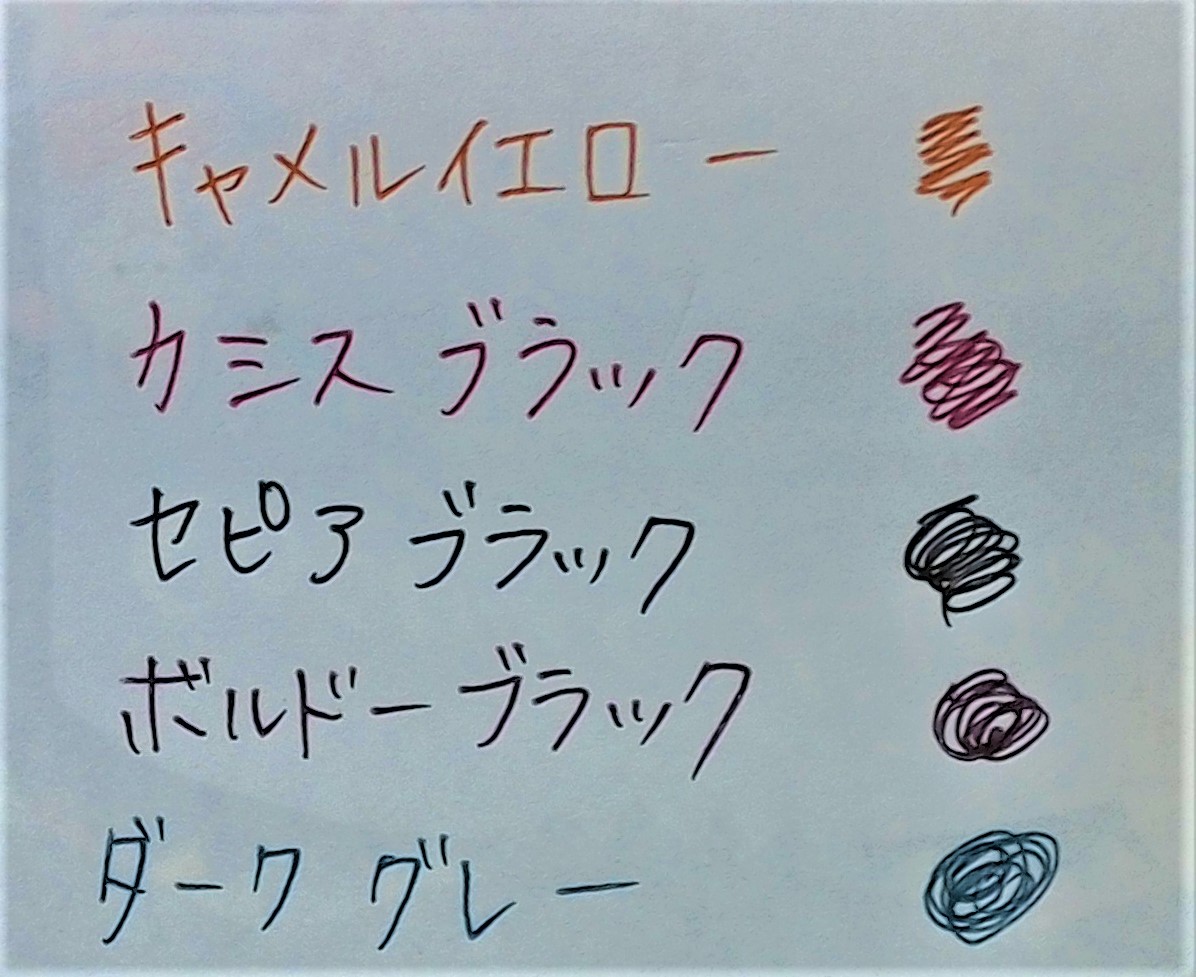 キャメルイエロー
カミスブラック
セピアブラック
ボルドーブラック
ダークグレー